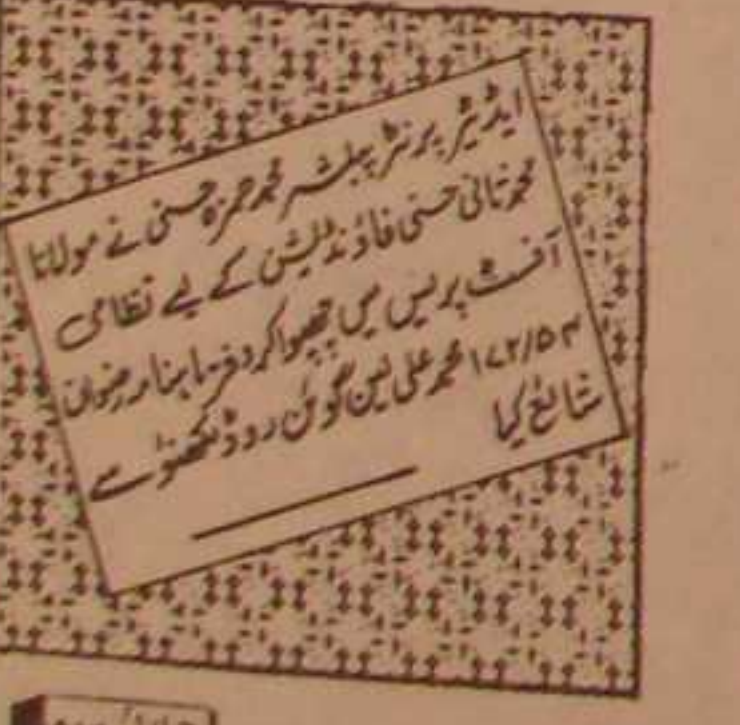 ایڈیٹر پرنٹر پبلشر محمد حمزہ حسنی نے مولانا
محمد ثانی حسنی فاؤنڈیشن کے لیے نظامی
آفسٹ پریس میں چھپوا کر دفتر ماہنامہ رضوان
۱۷۲/۵۴ محمد علی لین گوئن روڈ لکھنؤ سے
شائع کیا